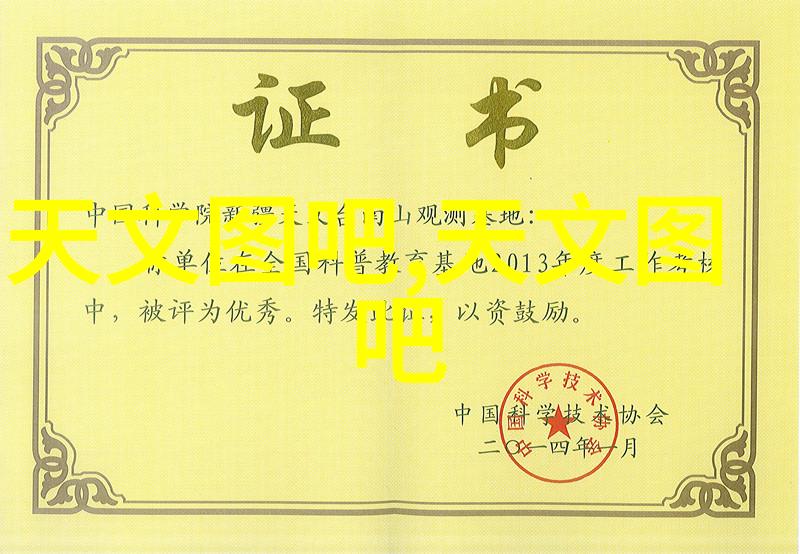 证书
中国科学院新疆天文台南山观测基地:
你单位在全国科普教育基地2013年度工作考核
中，被评为优秀。特发此证，以资鼓励。
天文图吧,天文图
吧
中国科学技术协会
二〇一四年一月
中国科学技术协会